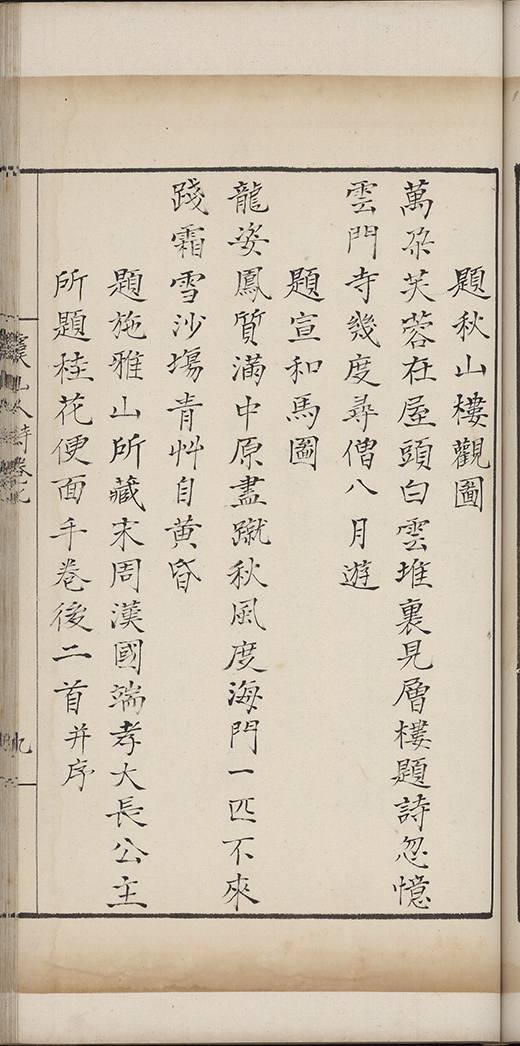 題秋山樓觀圖
萬朶芙蓉在屋頭白雲堆裏見層樓題詩忽憶
雲門寺幾度尋僧八月遊
題宣和馬圖
龍姿鳳質滿中原盡蹴秋風度海門一匹不來
踐霜雪沙場青艸自黃昏
題施雅山所藏宋周漢國端孝大長公主
所題桂花便面手卷後二首并序